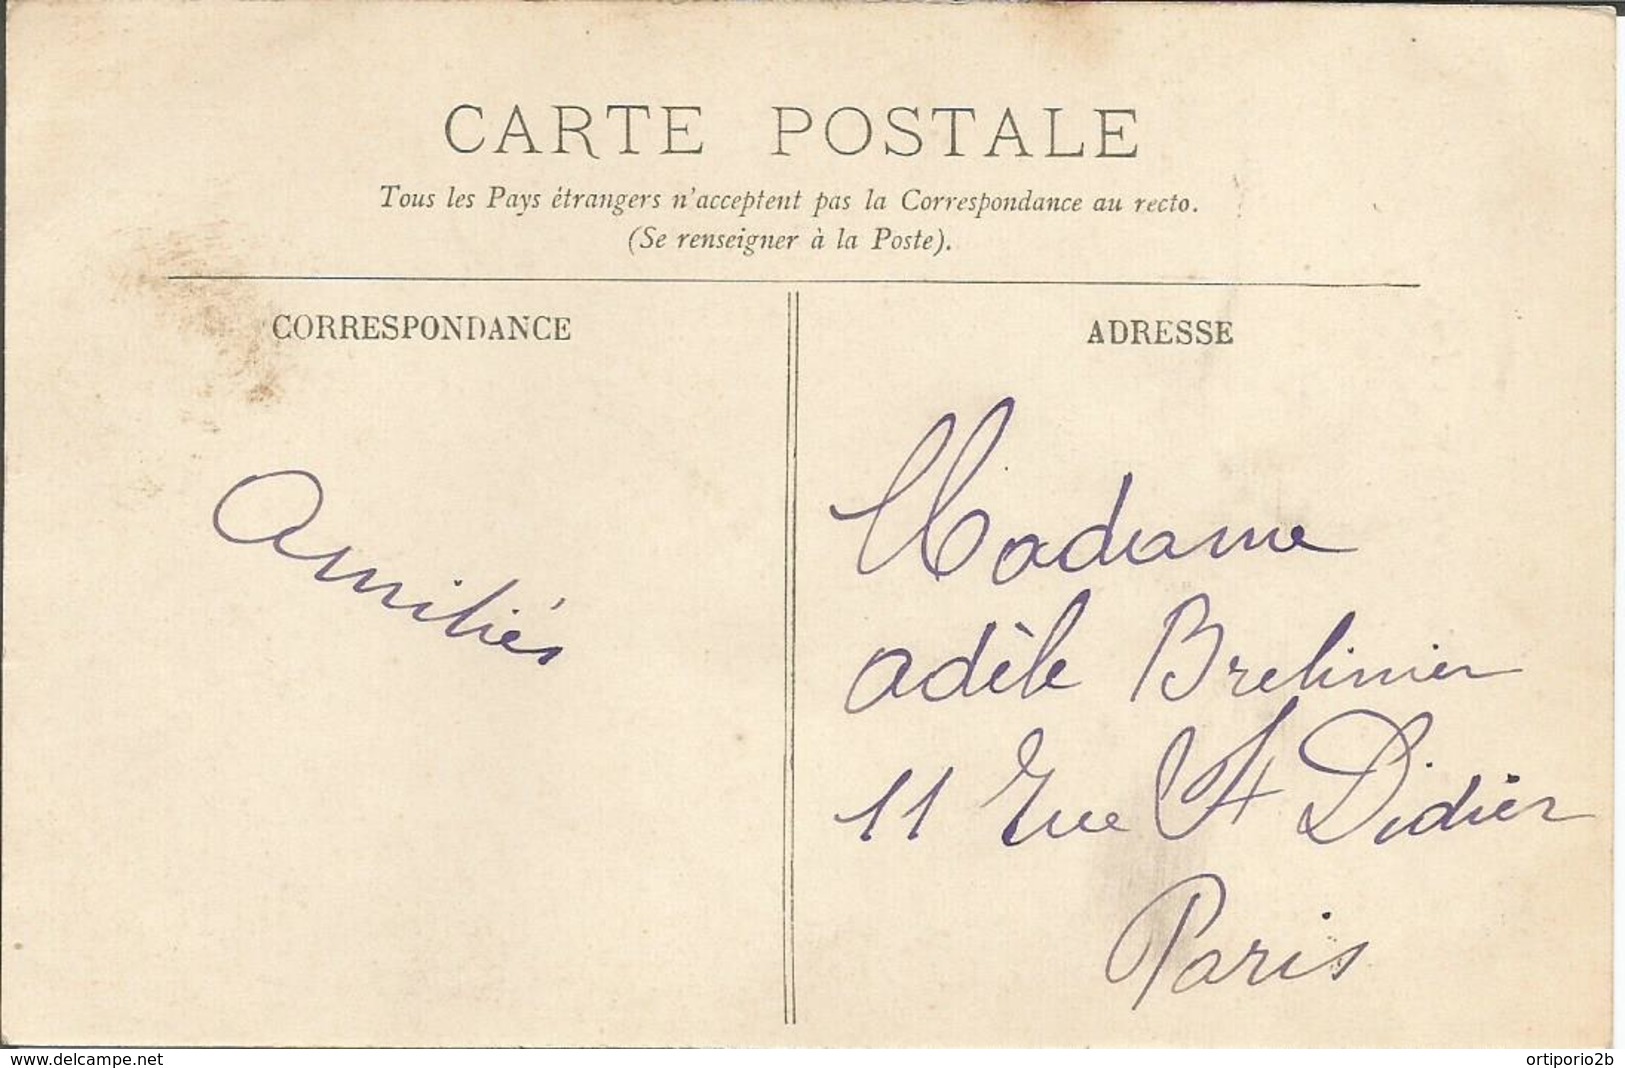 CARTE POSTALE
Tous les Pays étrangers n'acceptent pas la Correspondance au recto.
(Se renseigner à la Poste).
CORRESPONDANCE
Amitiés
ADRESSE
Madame
Adèle Brelinier
11 Rue St Didier
Paris
www.delcampe.net
ortiporio2b